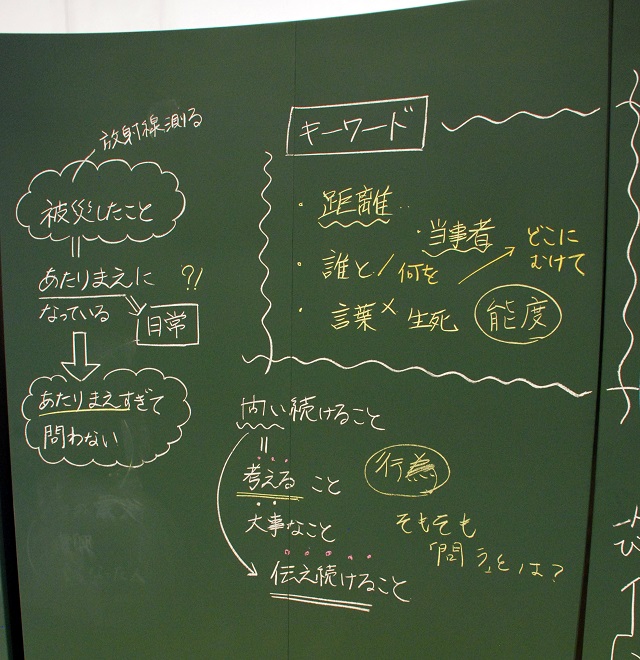 放射線測る
被災したこと
あたりまえに
?!
なっている
日常
あたりまえすぎて
問わない
キーワード
・距離‥
・当事者
・誰と/何を
どこに
むけて
・言葉×生死
能度
問い続けること
考えること
行為
大事なこと
伝え続けること
そもそも
「問う」とは?